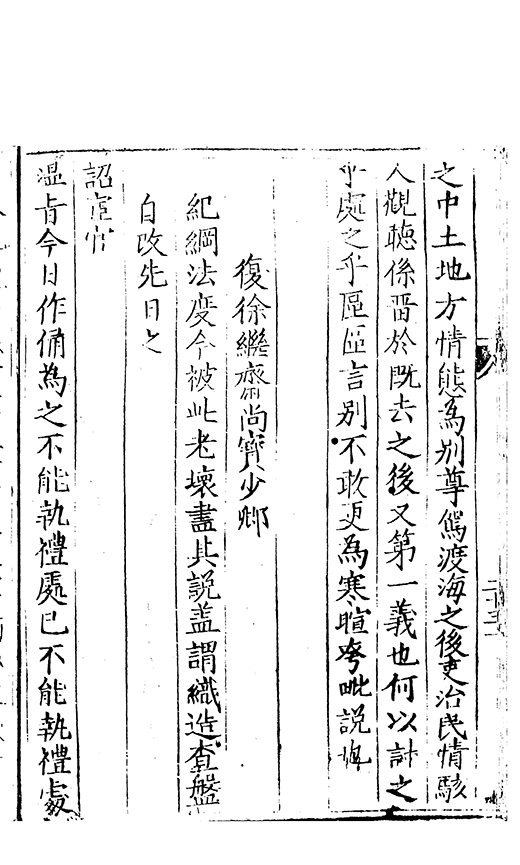 之中土地方情態為別尊駕渡海之後吏治民情駭
人觀聽係晋於既去之後又第一義也何以計之
乎處之乎區區言别不敢更為寒暄夸毗説
復徐繼齋尚寳少卿
紀綱法度今被此老壞盡其説盖謂織造查盤
自改先日之
詔
温旨今日作俑為之不能執禮處已不能執禮處